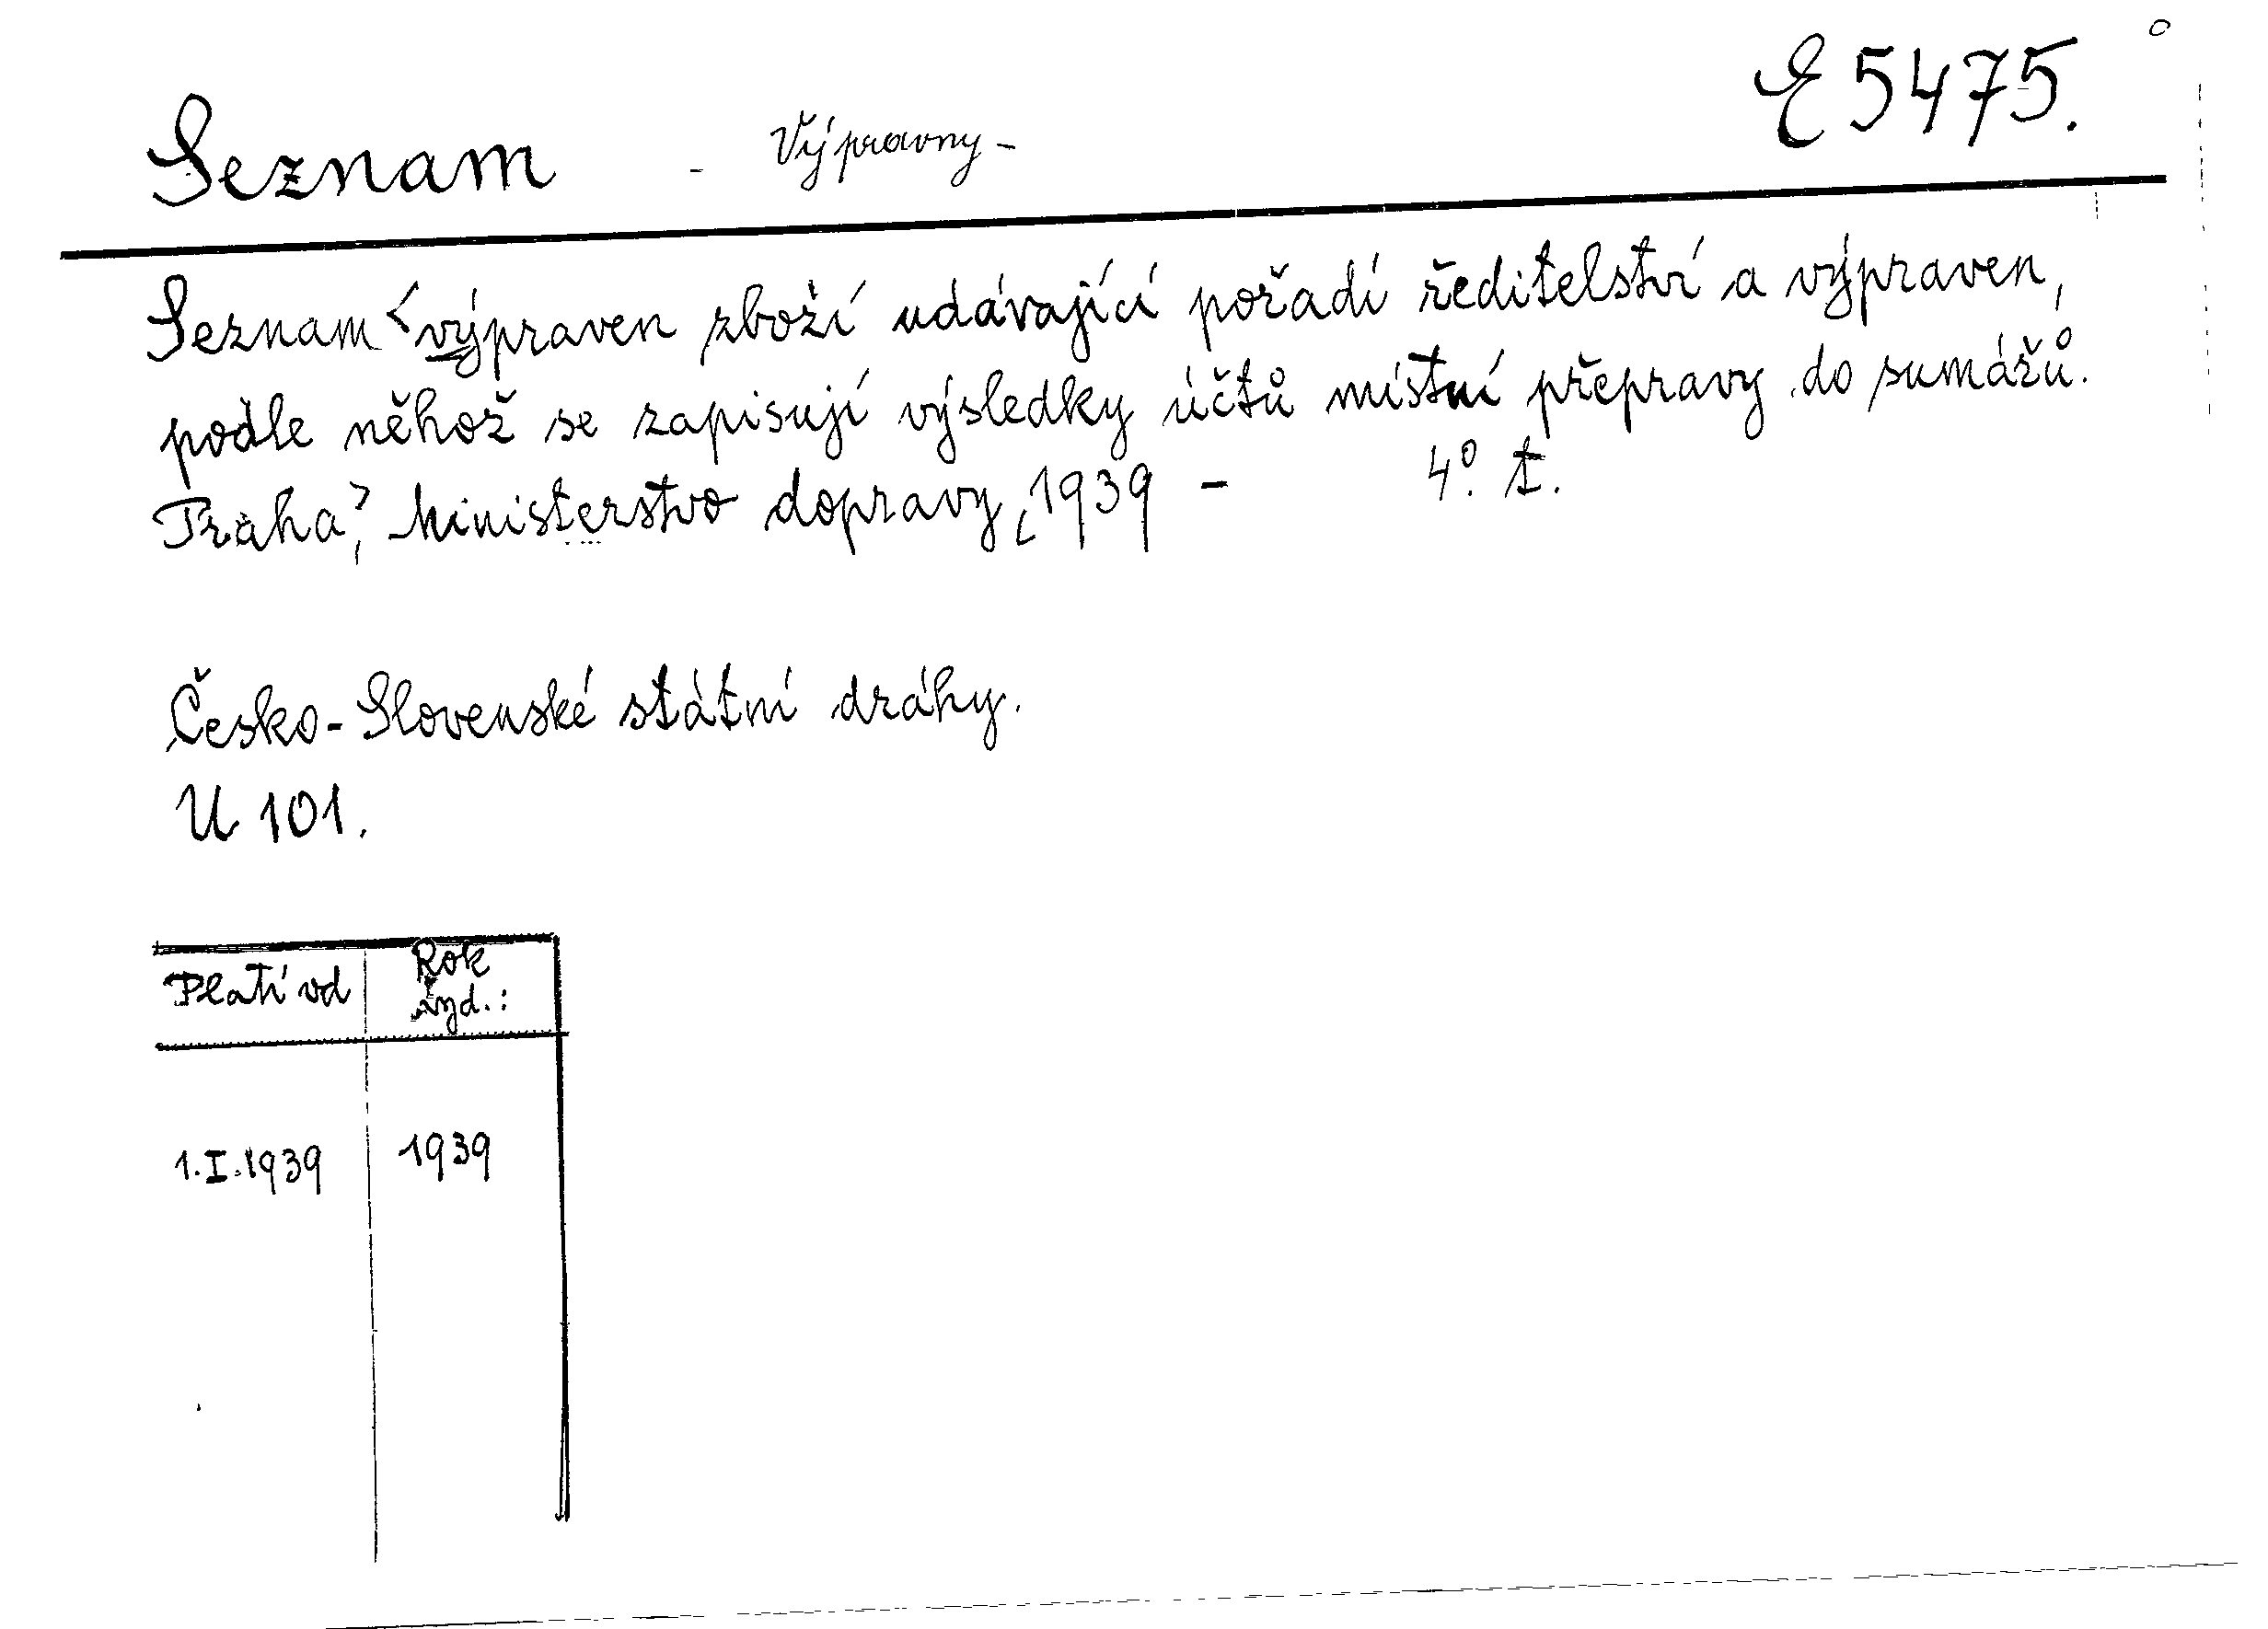 Seznam - Výpravny - E 5475.
Seznam < výpraven zboží udávající pořadí ředitelství a výpraven,
podle něhož se zapisují výsledky účtů místní přepravy do sumářů.
Praha?, Ministerstvo dopravy, 1939 - 4°. t.
Česko-Slovenské státní dráhy.
U 101.
Platí od Rok vyd.:
1.I.1939 1939